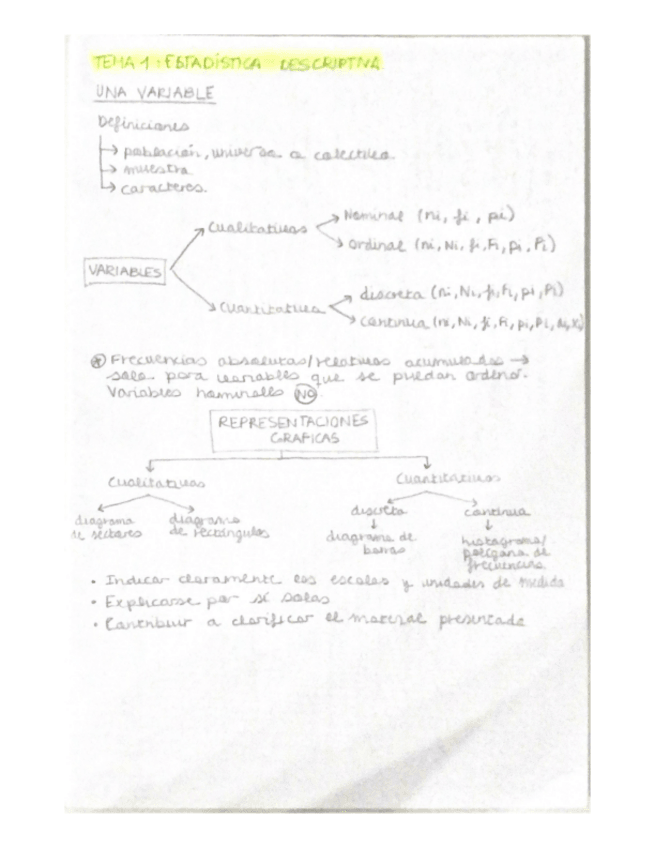 TEMA 1: ESTADÍSTICA DESCRIPTIVA
UNA VARIABLE
Definiciones
→ población, universo o colectivo.
→ muestra
→ caracteres.
VARIABLES
Cualitativas
Nominal (ni, fi, pi)
Ordinal (ni, Ni, fi, Fi, pi, Pi)
Cuantitativa
discreta (ni, Ni, fi, Fi, pi, Pi)
continua (ni, Ni, fi, Fi, pi, Pi,
* Frecuencias absolutas/relativas acumuladas →
solo para variables que se puedan
Variables nominales NO
REPRESENTACIONES
GRAFICAS
Cualitativas
Cuantitativas
diagrama
de sectores
diagrama
de rectángulos
discreta
continua
diagrama de
barras
histograma/
polígono de
frecuencias.
• Indicar claramente las escalas y unidades de medida
• Explicarse por sí solas
• Contribuir a clarificar el material presentado